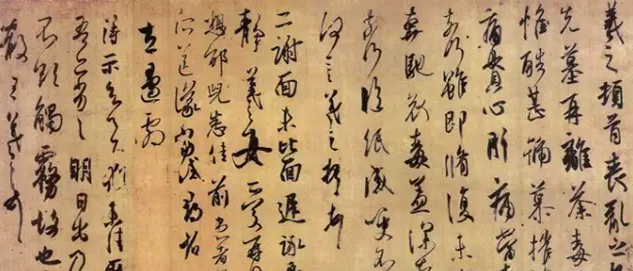 羲之頓首喪亂之極
先墓再離荼毒
惟酷甚號慕摧
痛貫心肝痛當
奈何雖即脩復未
奔馳哀毒益深
奈何臨紙感哽不
何言羲之頓首
二謝面未比面遲詠
靜羲之女愛再
想邵兒悉佳前患者
所送議當試尋省
左邊劇
得示知足下猶未佳
吾亦劣劣明日出乃
不欲觸霧故也
散王羲之頓